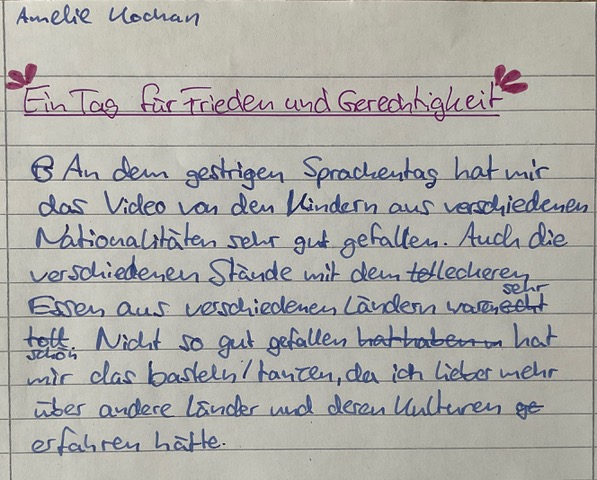 Amelie Kochan
Ein Tag für Frieden und Gerechtigkeit
An dem gestrigen Sprachentag hat mir
das Video von den Kindern aus verschiedenen
Nationalitäten sehr gut gefallen. Auch die
verschiedenen Stände mit dem leckeren
Essen aus verschiedenen Ländern waren sehr
schön. Nicht so gut gefallen hat
mir das basteln/tanzen, da ich lieber mehr
über andere Länder und deren Kulturen
erfahren hätte.